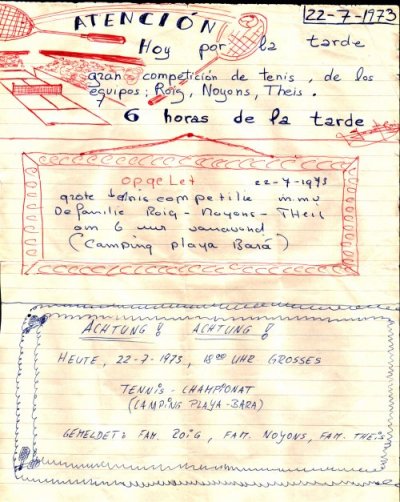 ATENCIÓN
22-7-1973
Hoy por la tarde
gran competición de tenis, de los
equipos: Roig, Noyons, Theis.
6 horas de la tarde
opgelet
22-7-1973
grote tennis competitie
De familie Roig - Noyons - Theis
om 6 uur vanavond
(Camping playa Bará)
ACHTUNG! ACHTUNG!
HEUTE, 22-7-1973, 18⁰⁰ UHR GROSSES
TENNIS - CHAMPIONAT
(CAMPING PLAYA-BARA)
GEMELDET: FAM. ROIG, FAM. NOYONS, FAM. THEIS